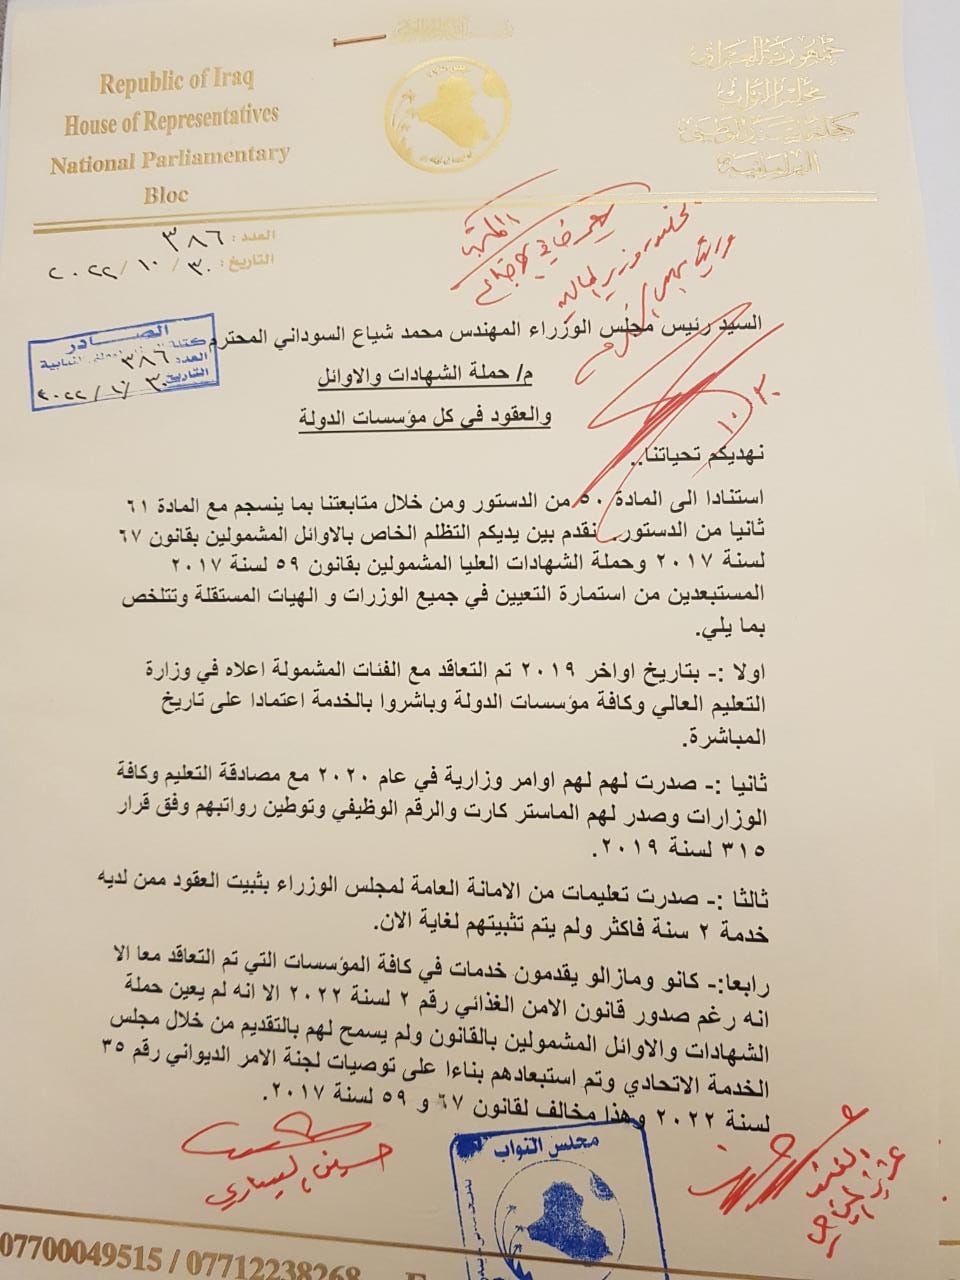 Republic of Iraq
House of Representatives
National Parliamentary
Bloc
جمهورية العراق
مجلس النواب
البرلمانية
العدد : ٣٨٦
التاريخ : ٣٠ / ١٠ / ٢٠٢٢
الصادر
العدد ٣٨٦
التاريخ ٣٠ / ١٠ / ٢٠٢٢
السيد رئيس مجلس الوزراء المهندس محمد شياع السوداني المحترم
م/ حملة الشهادات والاوائل
والعقود في كل مؤسسات الدولة
١٠/٣٠
نهديكم تحياتنا..
استنادا الى المادة ٥٠ من الدستور ومن خلال متابعتنا بما ينسجم مع المادة ٦١
ثانيا من الدستور. نقدم بين يديكم التظلم الخاص بالاوائل المشمولين بقانون ٦٧
لسنة ٢٠١٧ وحملة الشهادات العليا المشمولين بقانون ٥٩ لسنة ٢٠١٧
المستبعدين من استمارة التعيين في جميع الوزرات و الهيات المستقلة وتتلخص
بما يلي.
اولا :- بتاريخ اواخر ٢٠١٩ تم التعاقد مع الفئات المشمولة اعلاه في وزارة
التعليم العالي وكافة مؤسسات الدولة وباشروا بالخدمة اعتمادا على تاريخ
المباشرة.
ثانيا :- صدرت لهم لهم اوامر وزارية في عام ٢٠٢٠ مع مصادقة التعليم وكافة
الوزارات وصدر لهم الماستر كارت والرقم الوظيفي وتوطين رواتبهم وفق قرار
٣١٥ لسنة ٢٠١٩.
ثالثا :- صدرت تعليمات من الامانة العامة لمجلس الوزراء بثبيت العقود ممن لديه
خدمة ٢ سنة فاكثر ولم يتم تثبيتهم لغاية الان.
رابعا:- كانو ومازالو يقدمون خدمات في كافة المؤسسات التي تم التعاقد معا الا
انه رغم صدور قانون الامن الغذائي رقم ٢ لسنة ٢٠٢٢ الا انه لم يعين حملة
الشهادات والاوائل المشمولين بالقانون ولم يسمح لهم بالتقديم من خلال مجلس
الخدمة الاتحادي وتم استبعادهم بناءا على توصيات لجنة الامر الديواني رقم ٣٥
لسنة ٢٠٢٢ وهذا مخالف لقانون ٦٧ و ٥٩ لسنة ٢٠١٧.
مجلس النواب
07700049515 / 07712238268